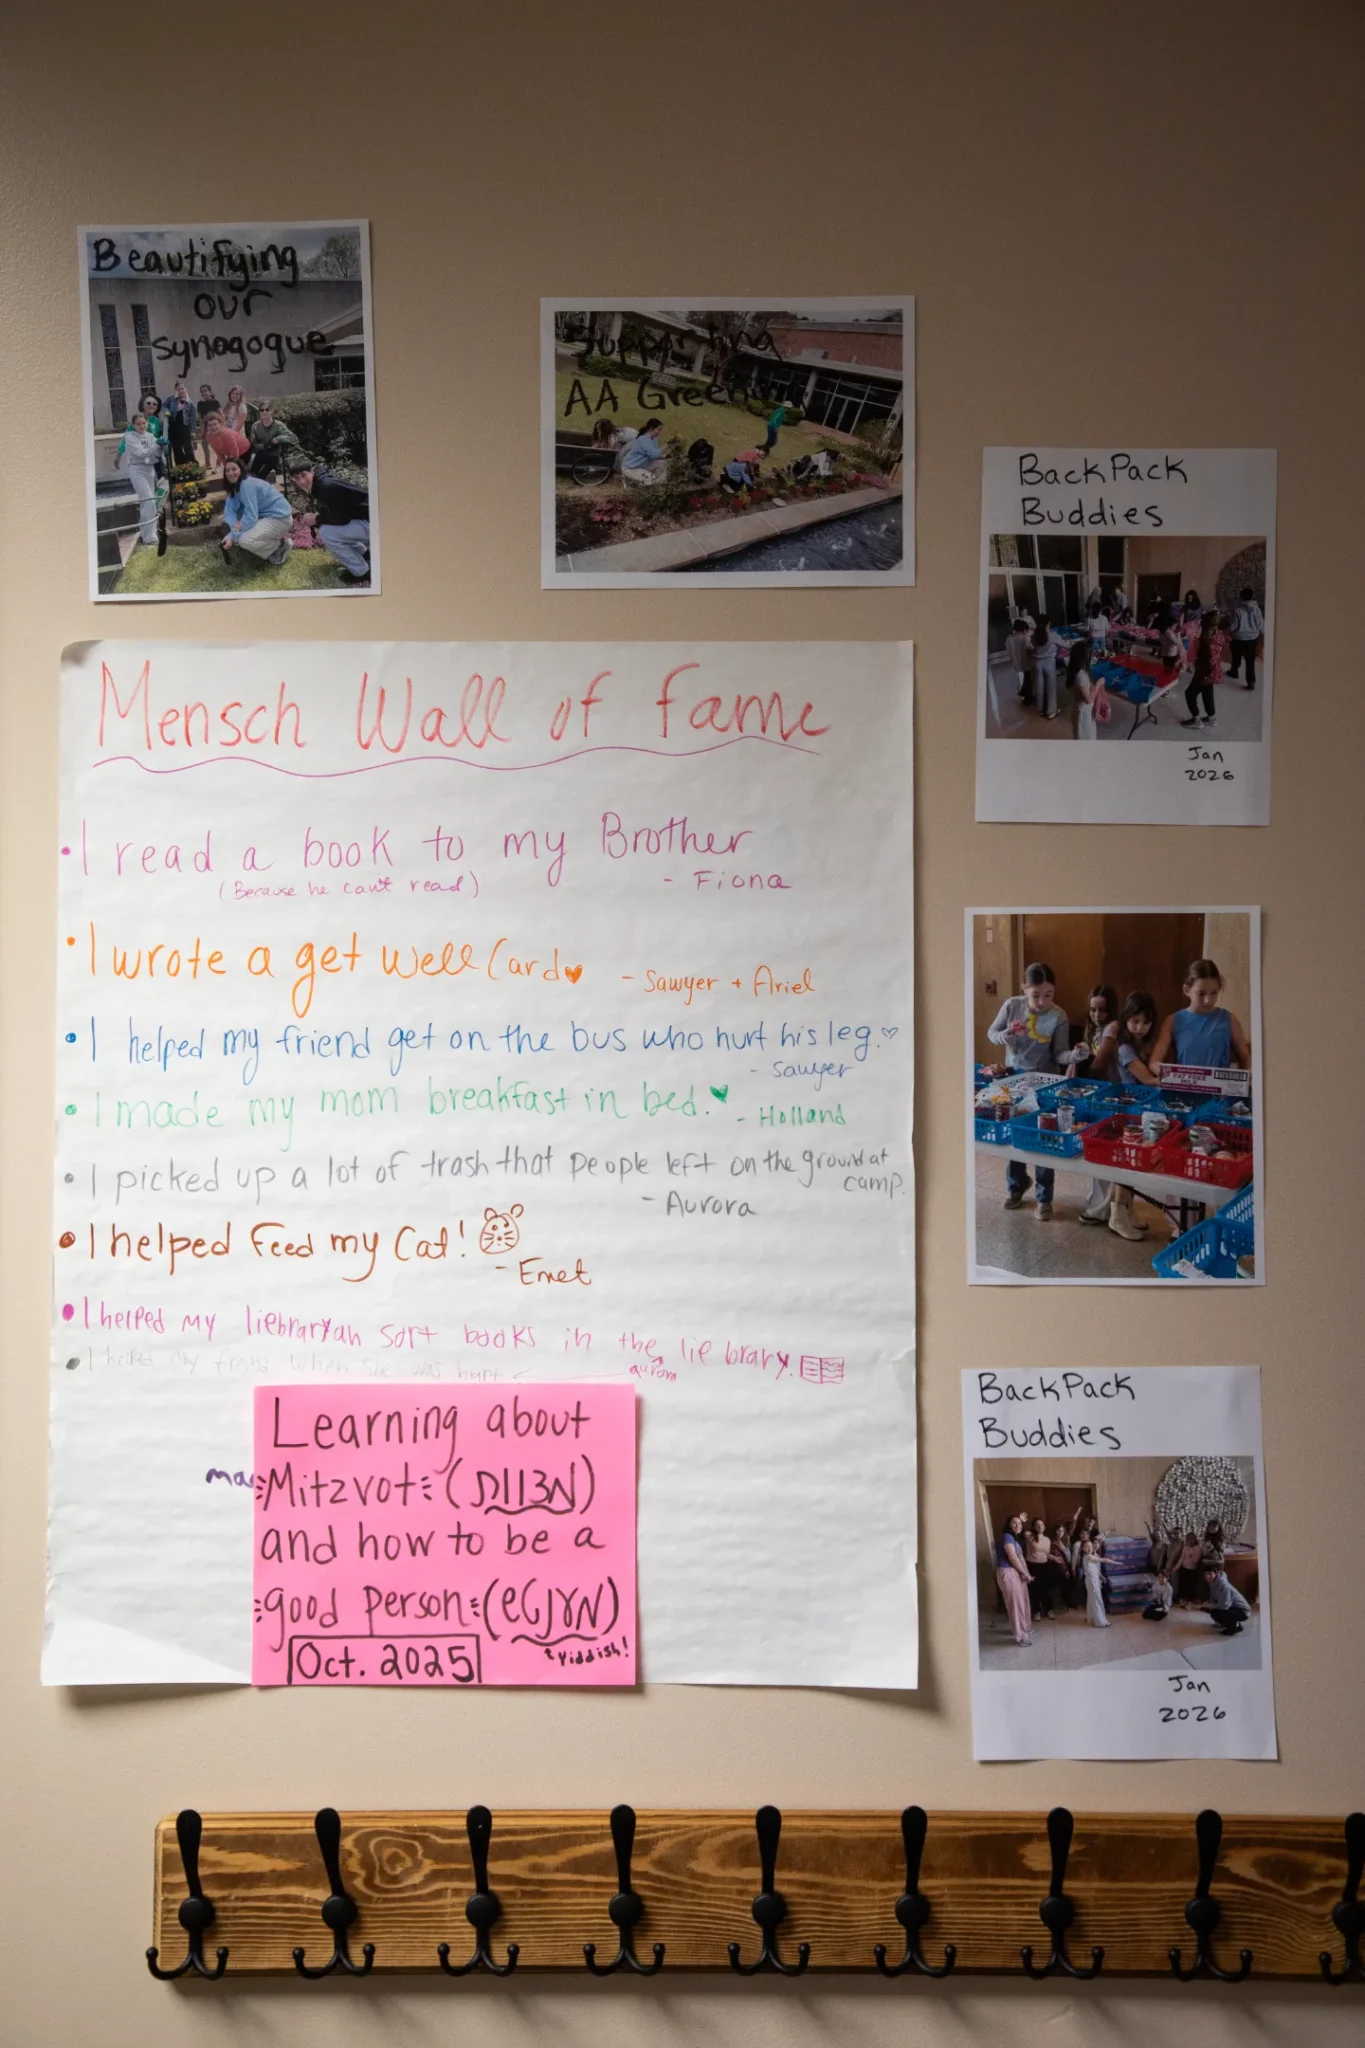 Beautifying
our
synagogue
Supporting
AA Greening
BackPack
Buddies
Jan
2026
Mensch Wall of Fame
• I read a book to my Brother
(Because he can't read)
- Fiona
• I wrote a get well Card
- Sawyer + Ariel
• I helped my friend get on the bus who hurt his leg.
- Sawyer
• I made my mom breakfast in bed.
- Holland
• I picked up a lot of trash that people left on the ground at
camp.
- Aurora
• I helped Feed my Cat!
- Emet
• I helped my liebraryan sort books in the lie brary.
• I helped my friend when she was hurt
aurora
Learning about
Mitzvot (מצוות)
and how to be a
good person (מענטש)
Yiddish!
Oct. 2025
FAT FREE
MILK
BackPack
Buddies
Jan
2026